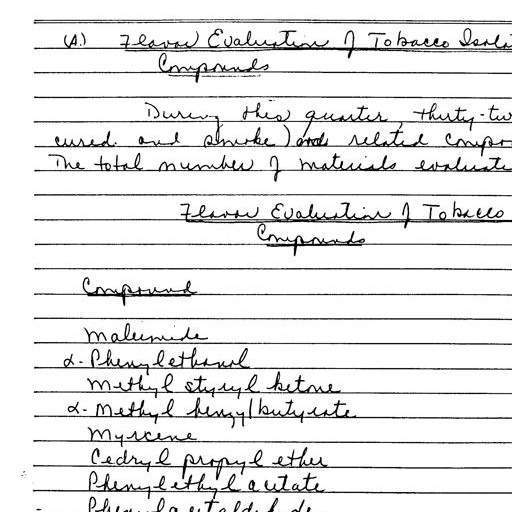 (A.) Flavor Evaluation of Tobacco Isolat
Compounds
During this quarter, thirty-tw
cured and smoke) and related compo
The total number of materials evaluate
Flavor Evaluation of Tobacco
Compounds
Compound
Maleimide
α-Phenylethanol
Methyl styryl ketone
α-Methyl benzyl butyrate
Myrcene
Cedryl propyl ether
Phenylethyl acetate
Phenylacetaldehyde